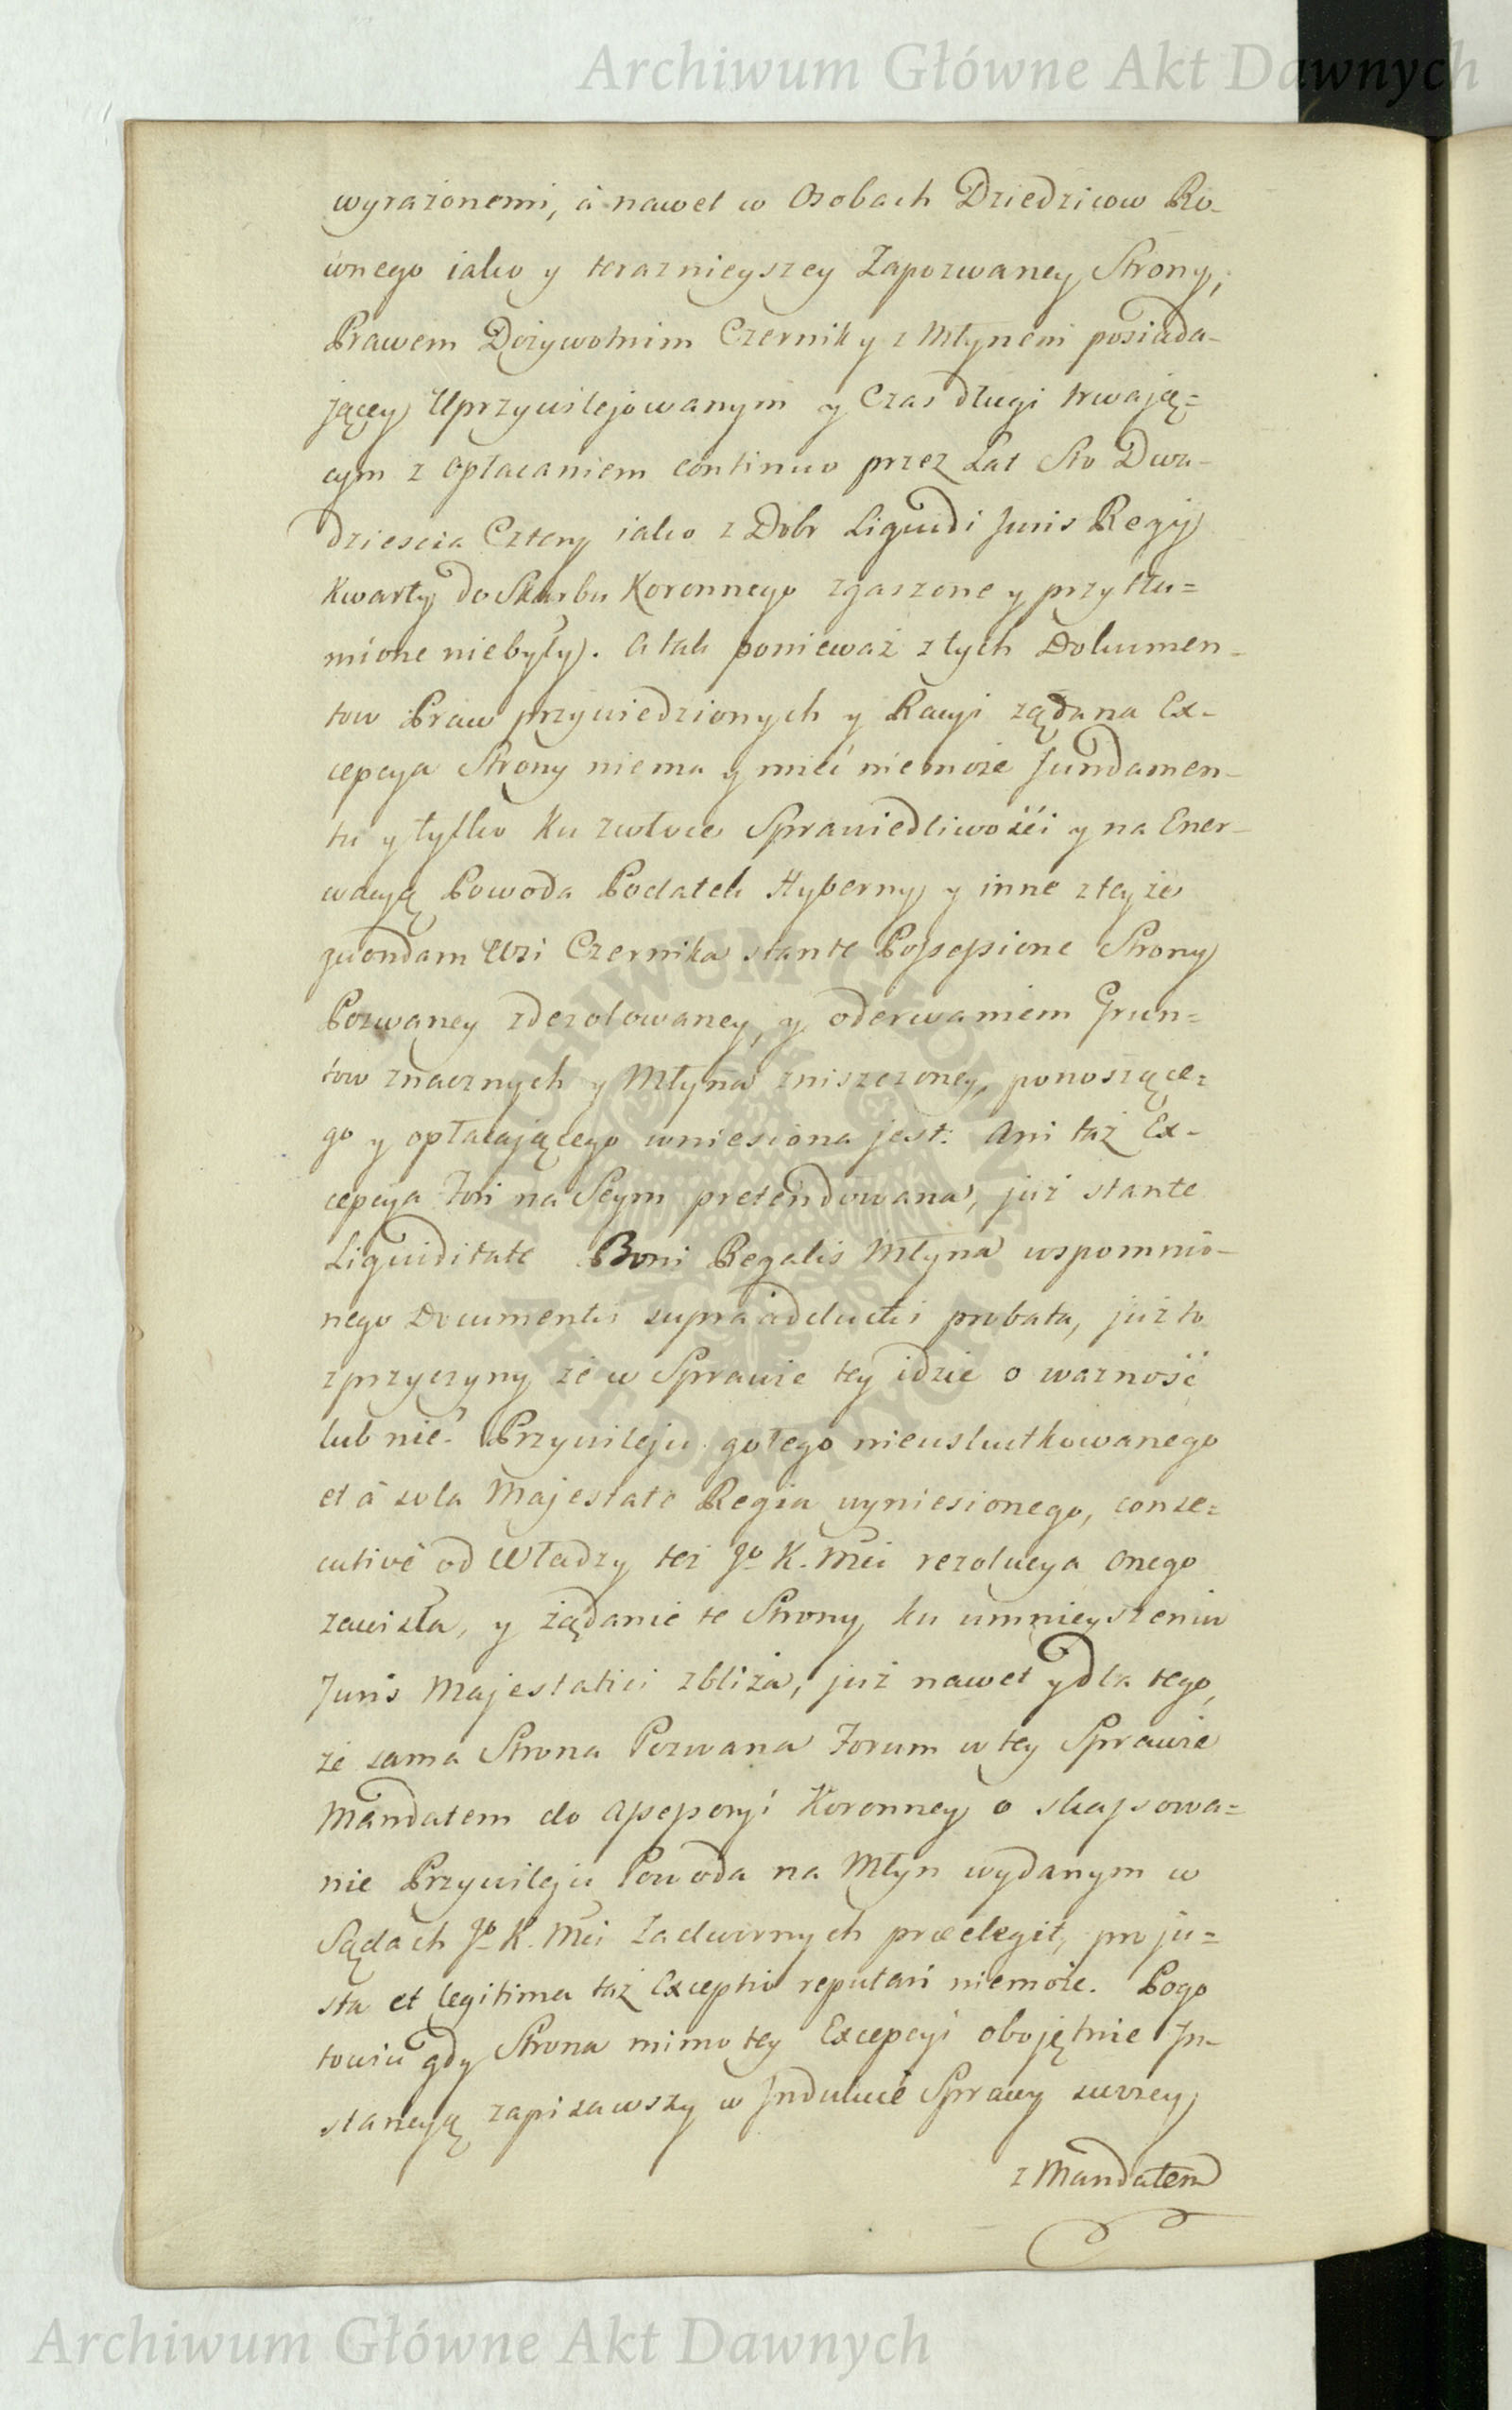 Archiwum Główne Akt Dawnych
wyrażonemi, à nawet w Osobach Dziedzicow Ro-
wnego iako y teraznieyszey Zapozwaney Strony,
Prawem Dożywotnim Czerniky z Młynem posiada-
jącey Uprzywilejowanym y Czas długi trwają=
cym z opłacaniem continuo przez Lat Sto Dwa-
dziescia Cztery iako z Dobr Liquidi Juris Regij
Kwarty do Skarbu Koronnego zgaszone y przytłu=
mione niebyły. A tak ponieważ z tych Dokumen-
tow Praw przywiedzionych y Racyi żądana Ex-
cepcya Strony niema y mieć niemoże fundamen-
tu y tylko ku zwłoce Sprawiedliwośći y na Ener-
wacyą Powoda Podatek Hyberny y inne z teyże
quondam Wsi Czernika stante Possessione Strony
Pozwaney zdezolowaney, y oderwaniem Grun=
tow znacznych y Młyna zniszczoney, ponoszące=
go y opłacającego wniesiona jest: Ani taż Ex-
cepcya Fori na Seym pretendowana, już stante
Liquiditate Boni Regalis Młyna wspomnio-
nego Documentis supra adductis probata, już to
z przyczyny że w Sprawie tey idzie o ważność
lub nie. Przywileju gołego nieuskutkowanego
et à sola Majestate Regia wyniesionego, conse=
cutivè od Władzy też Jo K. Mci rezolucya onego
zawisła, y żądanie te Strony ku umnieyszeniu
Juris Majestatici zbliża, już nawet y dla tego,
że sama Strona Pozwana Forum w tey Sprawie
Mandatem do Assessoryi Koronney o skassowa=
nie Przywileju Powoda na Młyn wydanym w
Sądach Jo K. Mci Zadwornych præelegit, pro ju=
sta et legitima taż Exceptio reputari niemoże. Pogo
towiu gdy Strona mimo tey Excepcyi obojętnie In-
stancyą zapisawszy w Indukcie Sprawy swoiey
z Mandatem
Archiwum Główne Akt Dawnych